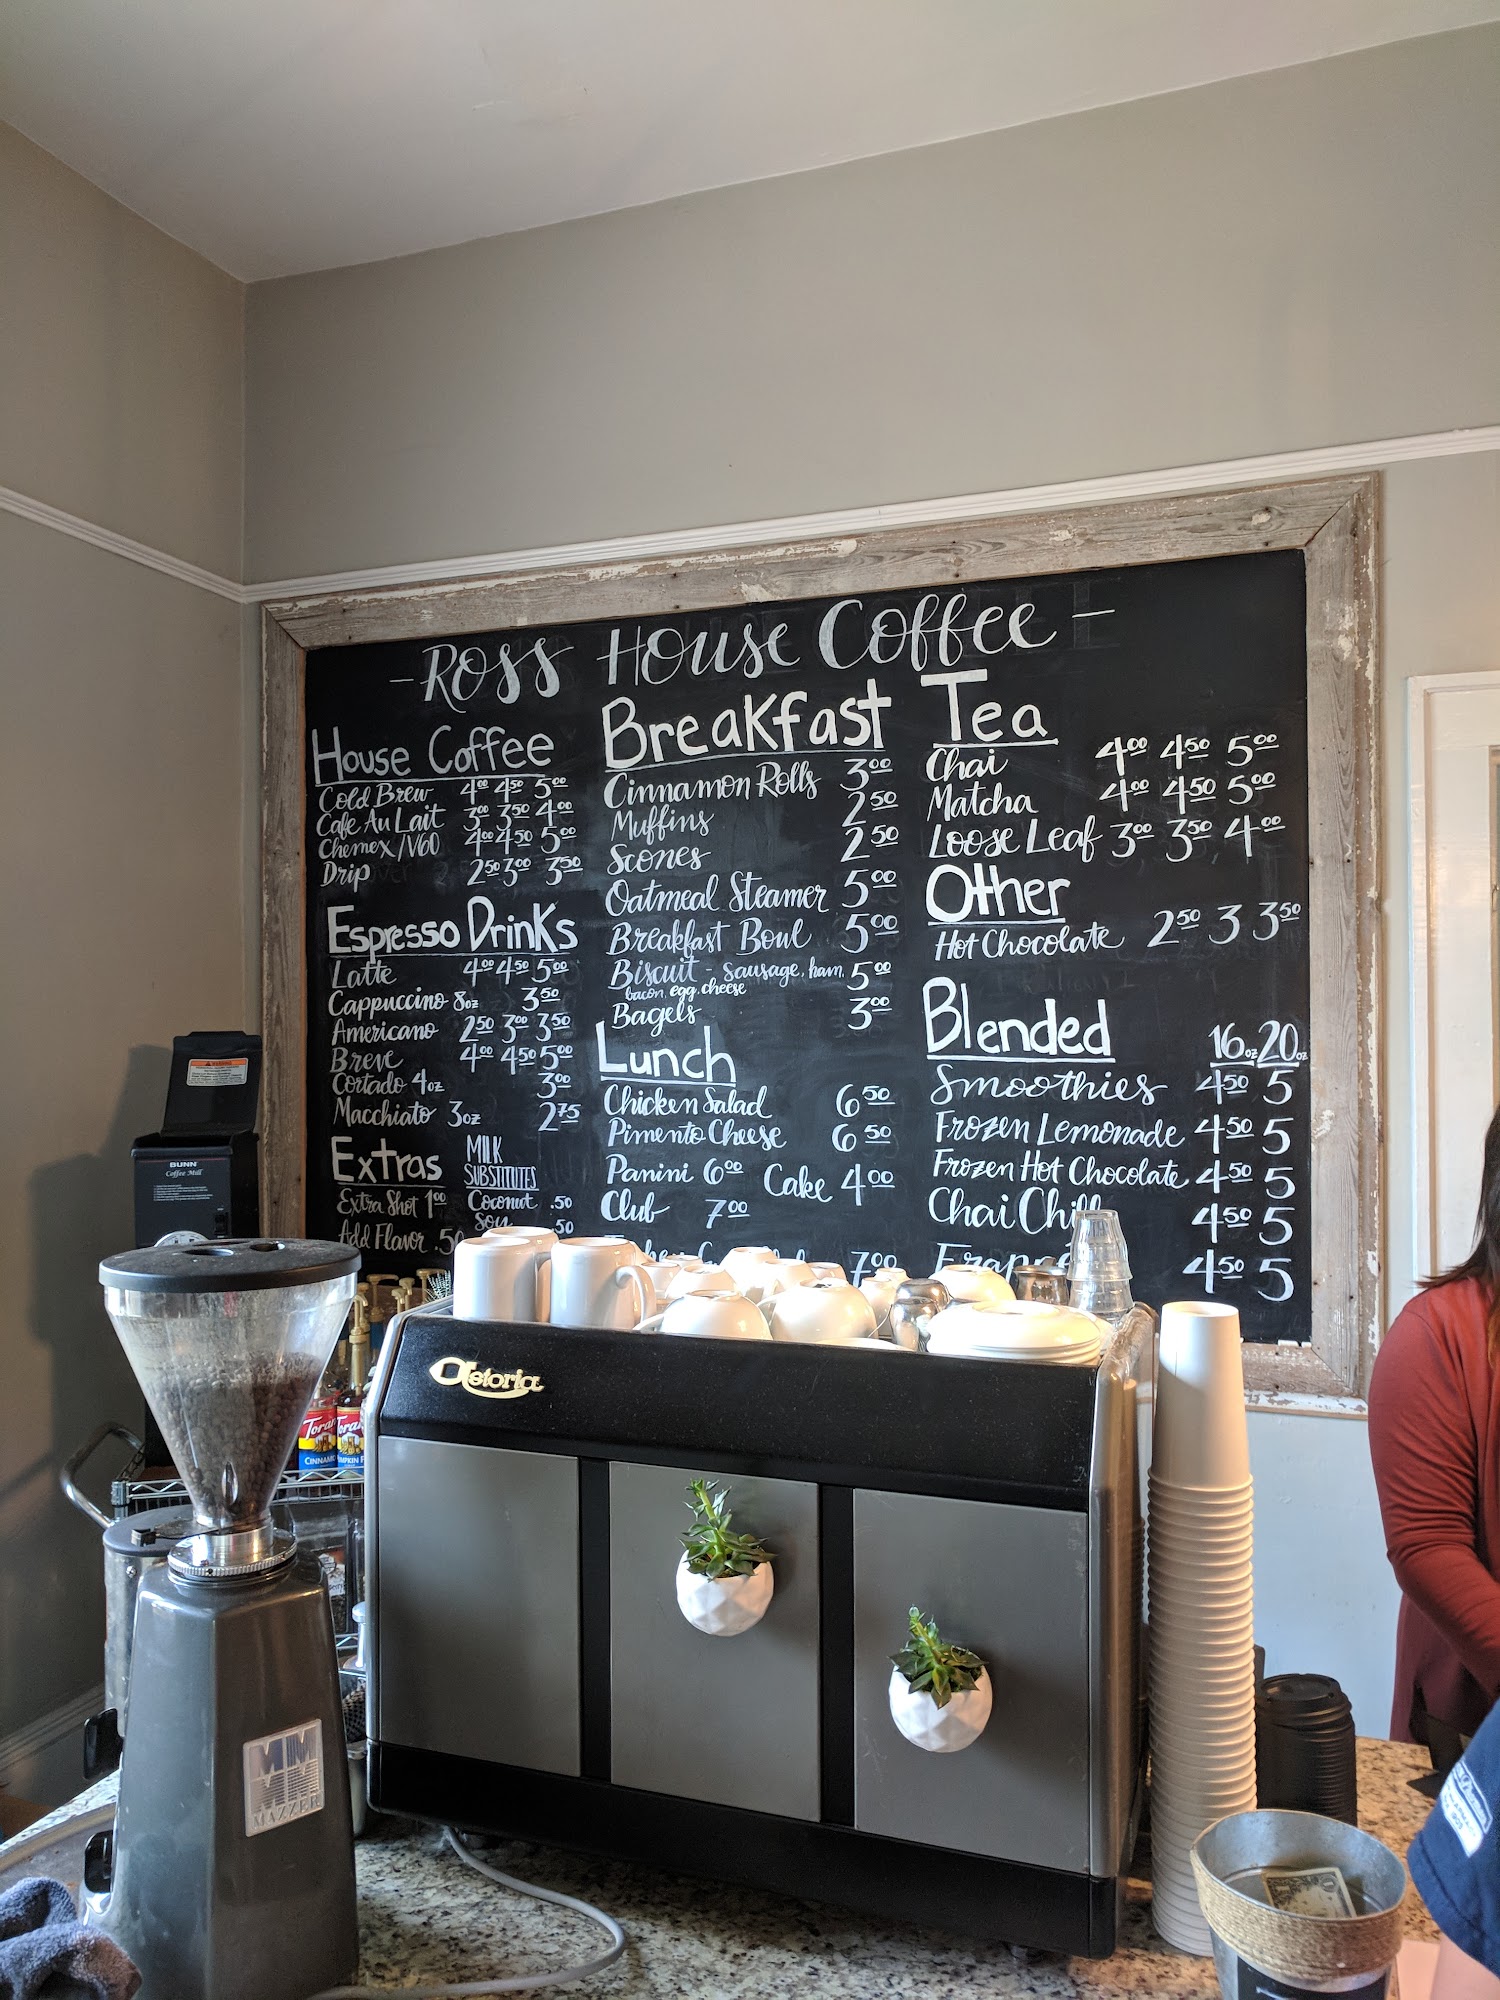 - Ross House Coffee -
House Coffee
Cold Brew 4.00 4.50 5.00
Cafe Au Lait 3.00 3.50 4.00
Chemex/V60 4.00 4.50 5.00
Drip 2.50 3.00 3.50
Espresso Drinks
Latte 4.00 4.50 5.00
Cappuccino 8oz 3.50
Americano 2.50 3.00 3.50
Breve 4.00 4.50 5.00
Cortado 4oz 3.00
Macchiato 3oz 2.75
Extras
Extra Shot 1.00
Add Flavor .50
MILK
SUBSTITUTES
Coconut .50
Soy .50
Breakfast
Cinnamon Rolls 3.00
Muffins 2.50
Scones 2.50
Oatmeal Steamer 5.00
Breakfast Bowl 5.00
Biscuit - sausage, ham, 5.00
bacon, egg, cheese
Bagels 3.00
Lunch
Chicken Salad 6.50
Pimento Cheese 6.50
Panini 6.00 Cake 4.00
Club 7.00
7.00
Tea
Chai 4.00 4.50 5.00
Matcha 4.00 4.50 5.00
Loose Leaf 3.00 3.50 4.00
Other
Hot Chocolate 2.50 3 3.50
Blended 16oz 20oz
Smoothies 4.50 5
Frozen Lemonade 4.50 5
Frozen Hot Chocolate 4.50 5
Chai Chill 4.50 5
4.50 5
BUNN
Coffee Mill
Astoria
MAZZER